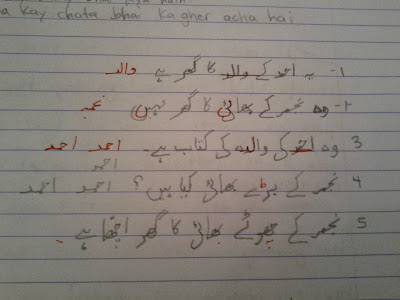 kay chota bhai ka gher acha hai
۱- یہ احمد کے والد کا گھر ہے والد
۲- وہ نجمہ کے بھائی کا گھر نہیں نجمہ
3 وہ احمد کی والدہ کی کتاب ہے۔ احمد احمد
احمد
4 نجمہ کے بڑے بھائی کیا ہیں؟ احمد احمد
5 نجمہ کے چھوٹے بھائی کا گھر اچھا ہے۔